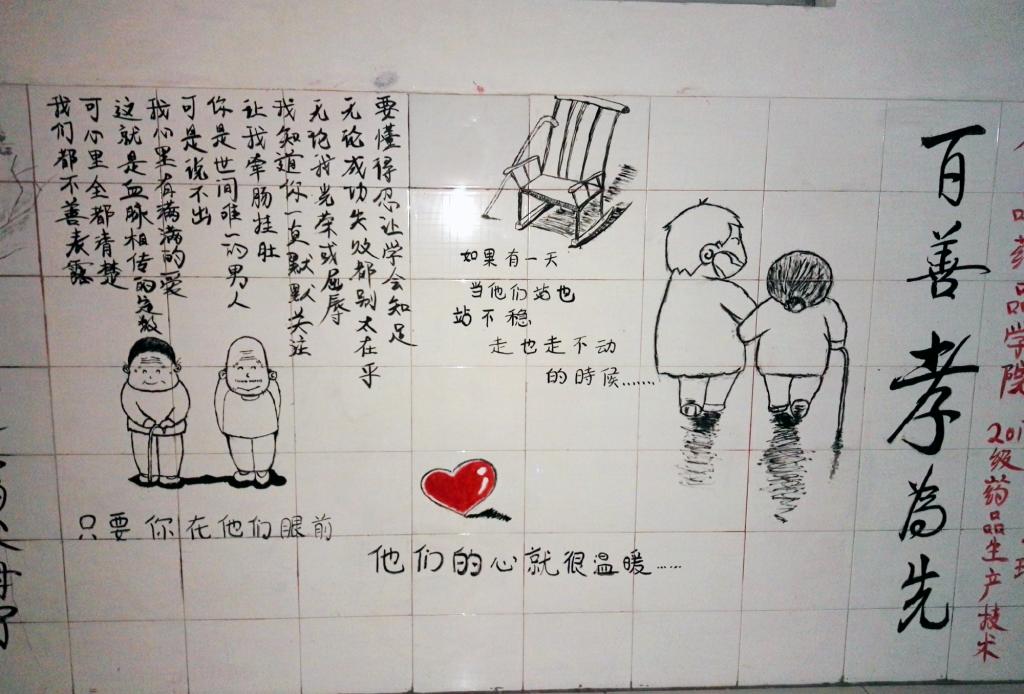 我们都不善表露
可心里全都清楚
这就是血脉相传的定数
我心里有满满的爱
可是说不出
你是世间唯一的男人
让我牵肠挂肚
我知道你一直默默关注
无论我光荣或屈辱
无论成功失败都别太在乎
要懂得忍让学会知足
如果有一天
当他们站也
站不稳
走也走不动
的时候……
只要你在他们眼前
他们的心就很温暖……
百善孝為先
药品学院
级药品生产技术